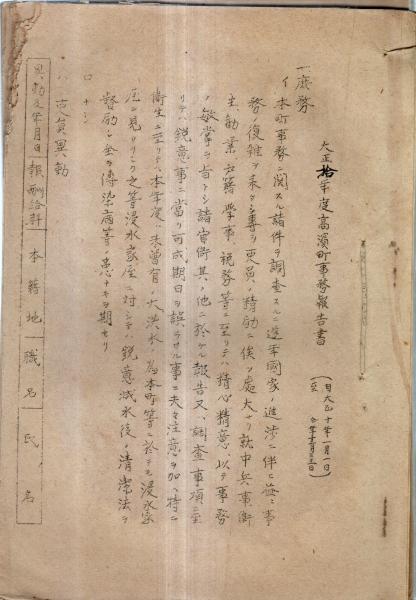 大正拾年度高濱町事務報告書
(自大正十年一月一日
至仝年十二月三十一日)
一、庶務
イ 本町事務ニ関スル諸件ヲ調査スルニ逐年國家ノ進渉ニ伴ヒ益々事
務ノ復雑ヲ来タシ専ラ吏員ノ精励ニ俟ツ處大ナリ就中兵事衛
生、勧業、戸籍、学事、税務等ニ至リテハ精心精意、以テ事務
ノ敏掌ヲ旨トシ諸官衙其ノ他ニ於ケル報告又ハ調査事項ニ至
リテハ鋭意事ニ當リ可成期日ヲ誤ラサル事ニ夫々注意ヲ加ヘ特ニ
衛生ニ至リテハ本年度ハ未曽有ノ大洪水ノ為本町等ニ於テモ浸水家
屋ヲ見タリシカ之等浸水家屋ニ対シテハ鋭意減水後ノ清潔法ヲ
督励シ全ク傳染病等ノ患ナキヲ期セリ
ロ ナシ
ハ 吏員異動
異動及年月日 報酬給料 本籍地 職名 氏名